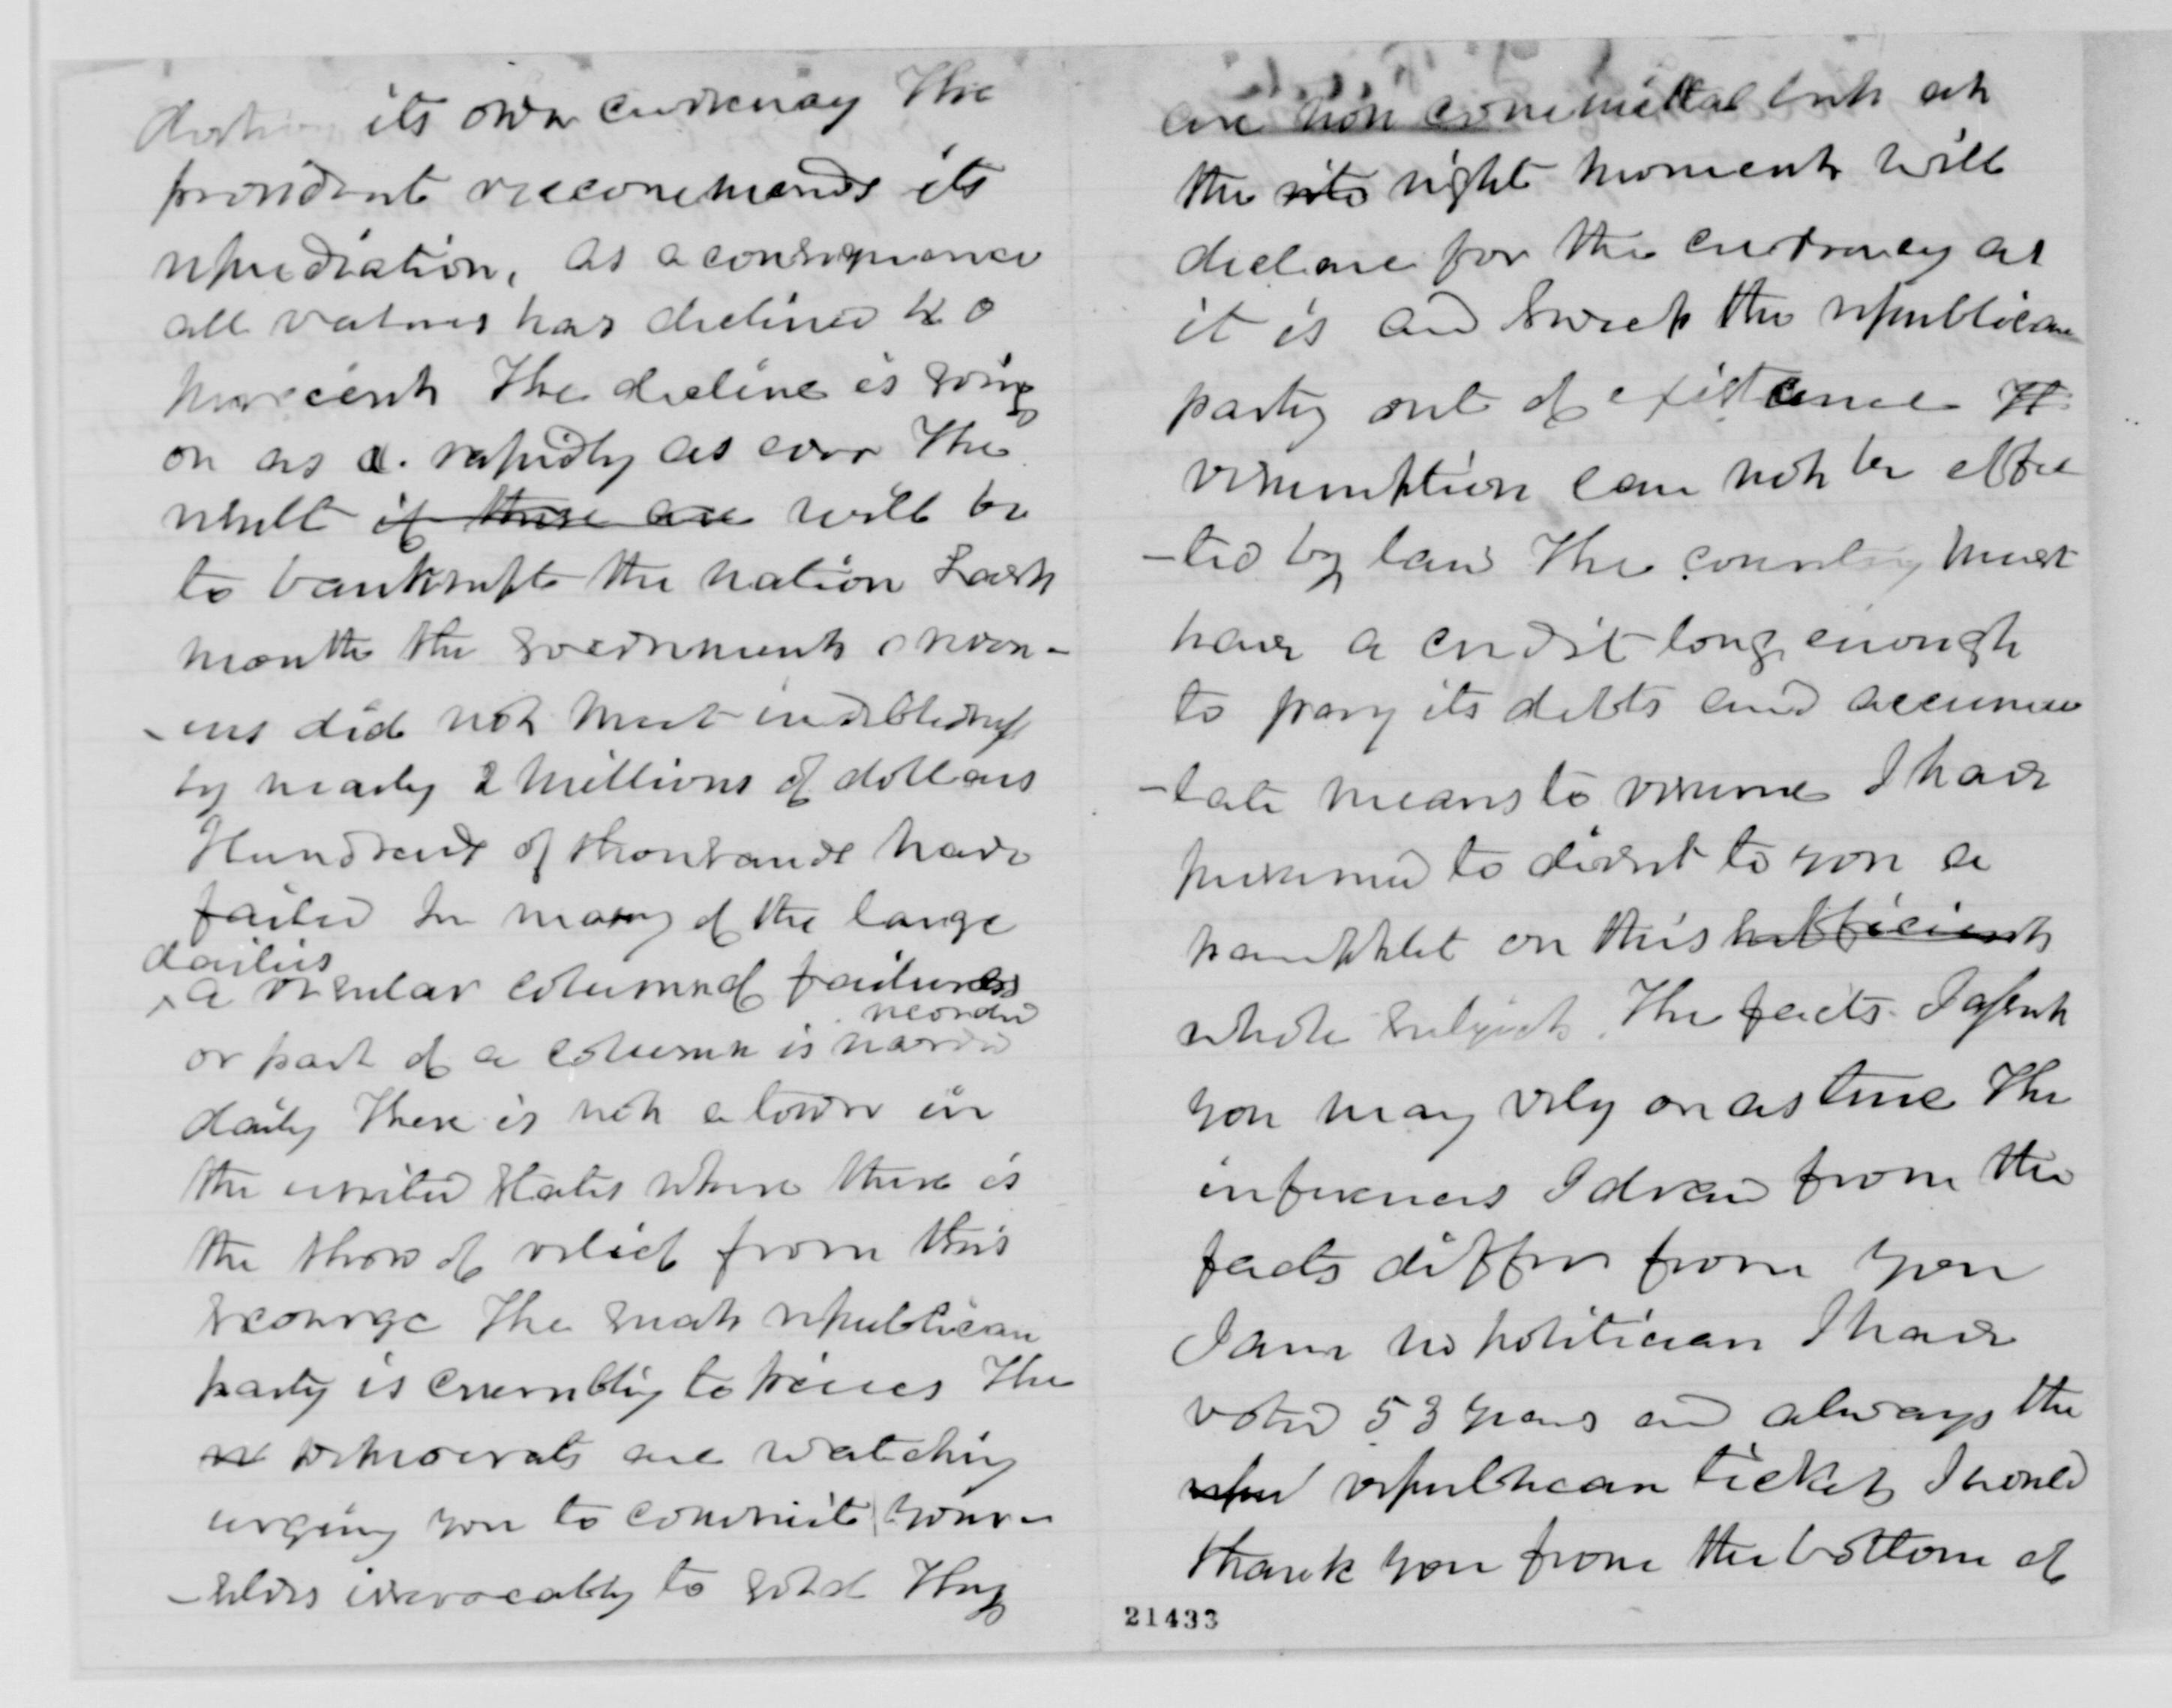 its own currency The
president reccommends its
repudiation, as a consequence
all values has declined 40
percent The decline is going
on as a. rapidly as ever The
result if there are will be
to bankrupt the nation Last
month the government reven-
-ues did not meet indebtedness
by nearly 2 millions of dollars
Hundreds of thousands have
failed In many of the large
dailies
a regular column of failures
recorded
or part of a column is
daily There is not a town in
the united States where there is
the show of relief from this
scourge The great republican
party is crumbling to pieces The
democrats are watching
urging you to commit your-
-selves irrevocably to gold They
are non committal but at
the its right moment will
declare for the currency as
it is and sweep the republican
party out of existance It
resumption can not be effec
-ted by law The country must
have a credit long enough
to pay its debts and accumu
-late means to resume I have
presumed to direct to you a
pamphlet on this sufficient
whole subject. The facts I assert
you may rely on as true The
inferences I draw from the
facts differ from you
I am no politician I have
voted 53 years and always the
repu republican ticket I would
thank you from the bottom of
21433